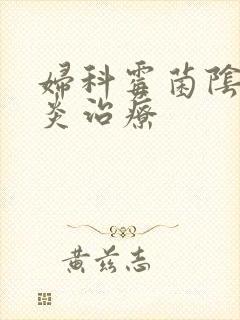 婦科霉菌陰
炎治療
黄兹志